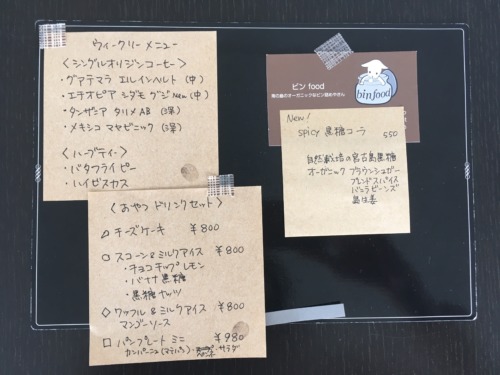 ウィークリーメニュー
〈シングルオリジンコーヒー〉
・グアテマラ エルインヘルト (中)
・エチオピア シダモ グジ New (中)
・タンザニア タリメAB (深)
・メキシコ マヤビニック (深)
〈ハーブティー〉
・バタフライピー
・ハイビスカス
〈おやつドリンクセット〉
チーズケーキ ¥800
スコーン&ミルクアイス ¥800
・チョコチップレモン
・バナナ黒糖
・黒糖ナッツ
ワッフル&ミルクアイス ¥800
マンゴーソース
パンプレートミニ ¥980
カンパーニュ ・サラダ
ビン food
南の島のオーガニックなビン詰めやさん
bin food
New!
spicy 黒糖コーラ 550
自然栽培の宮古島黒糖
オーガニック ブラウンシュガー
ブレンドスパイス
バニラビーンズ
島生姜